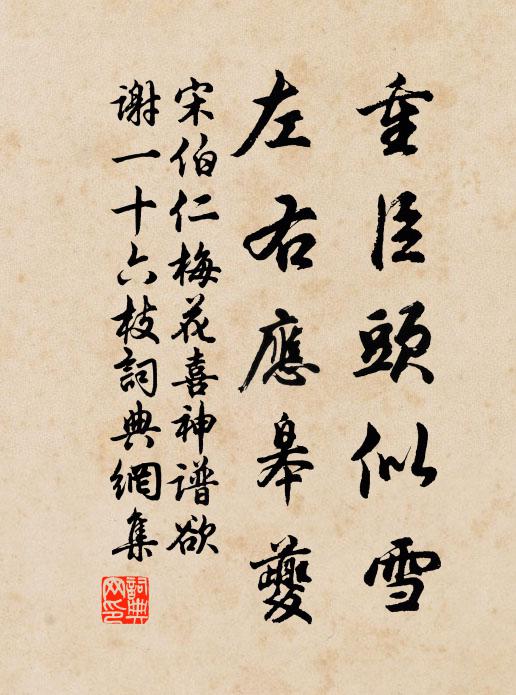 重臣頭似雪
左右應皋夔
宋伯仁梅花喜神谱欲
谢一十六枝詞典網集
詞典網印